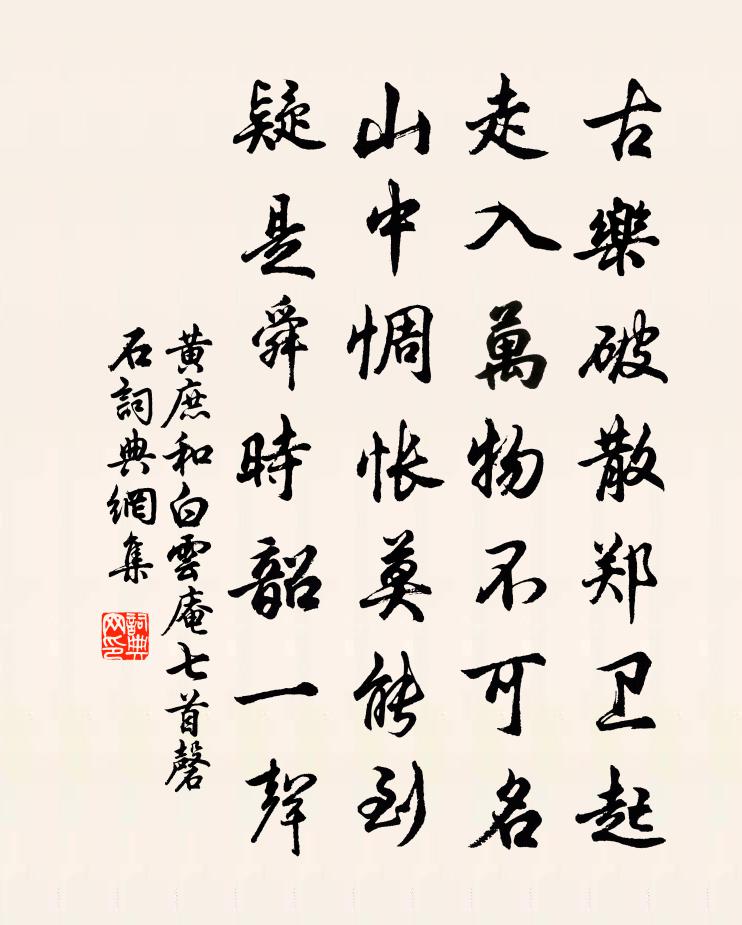 古樂破散郑卫起
走入萬物不可名
山中惆怅莫能到
疑是舜時韶一聲
黄庶和白雲庵七首磬
石詞典網集
詞典
网印